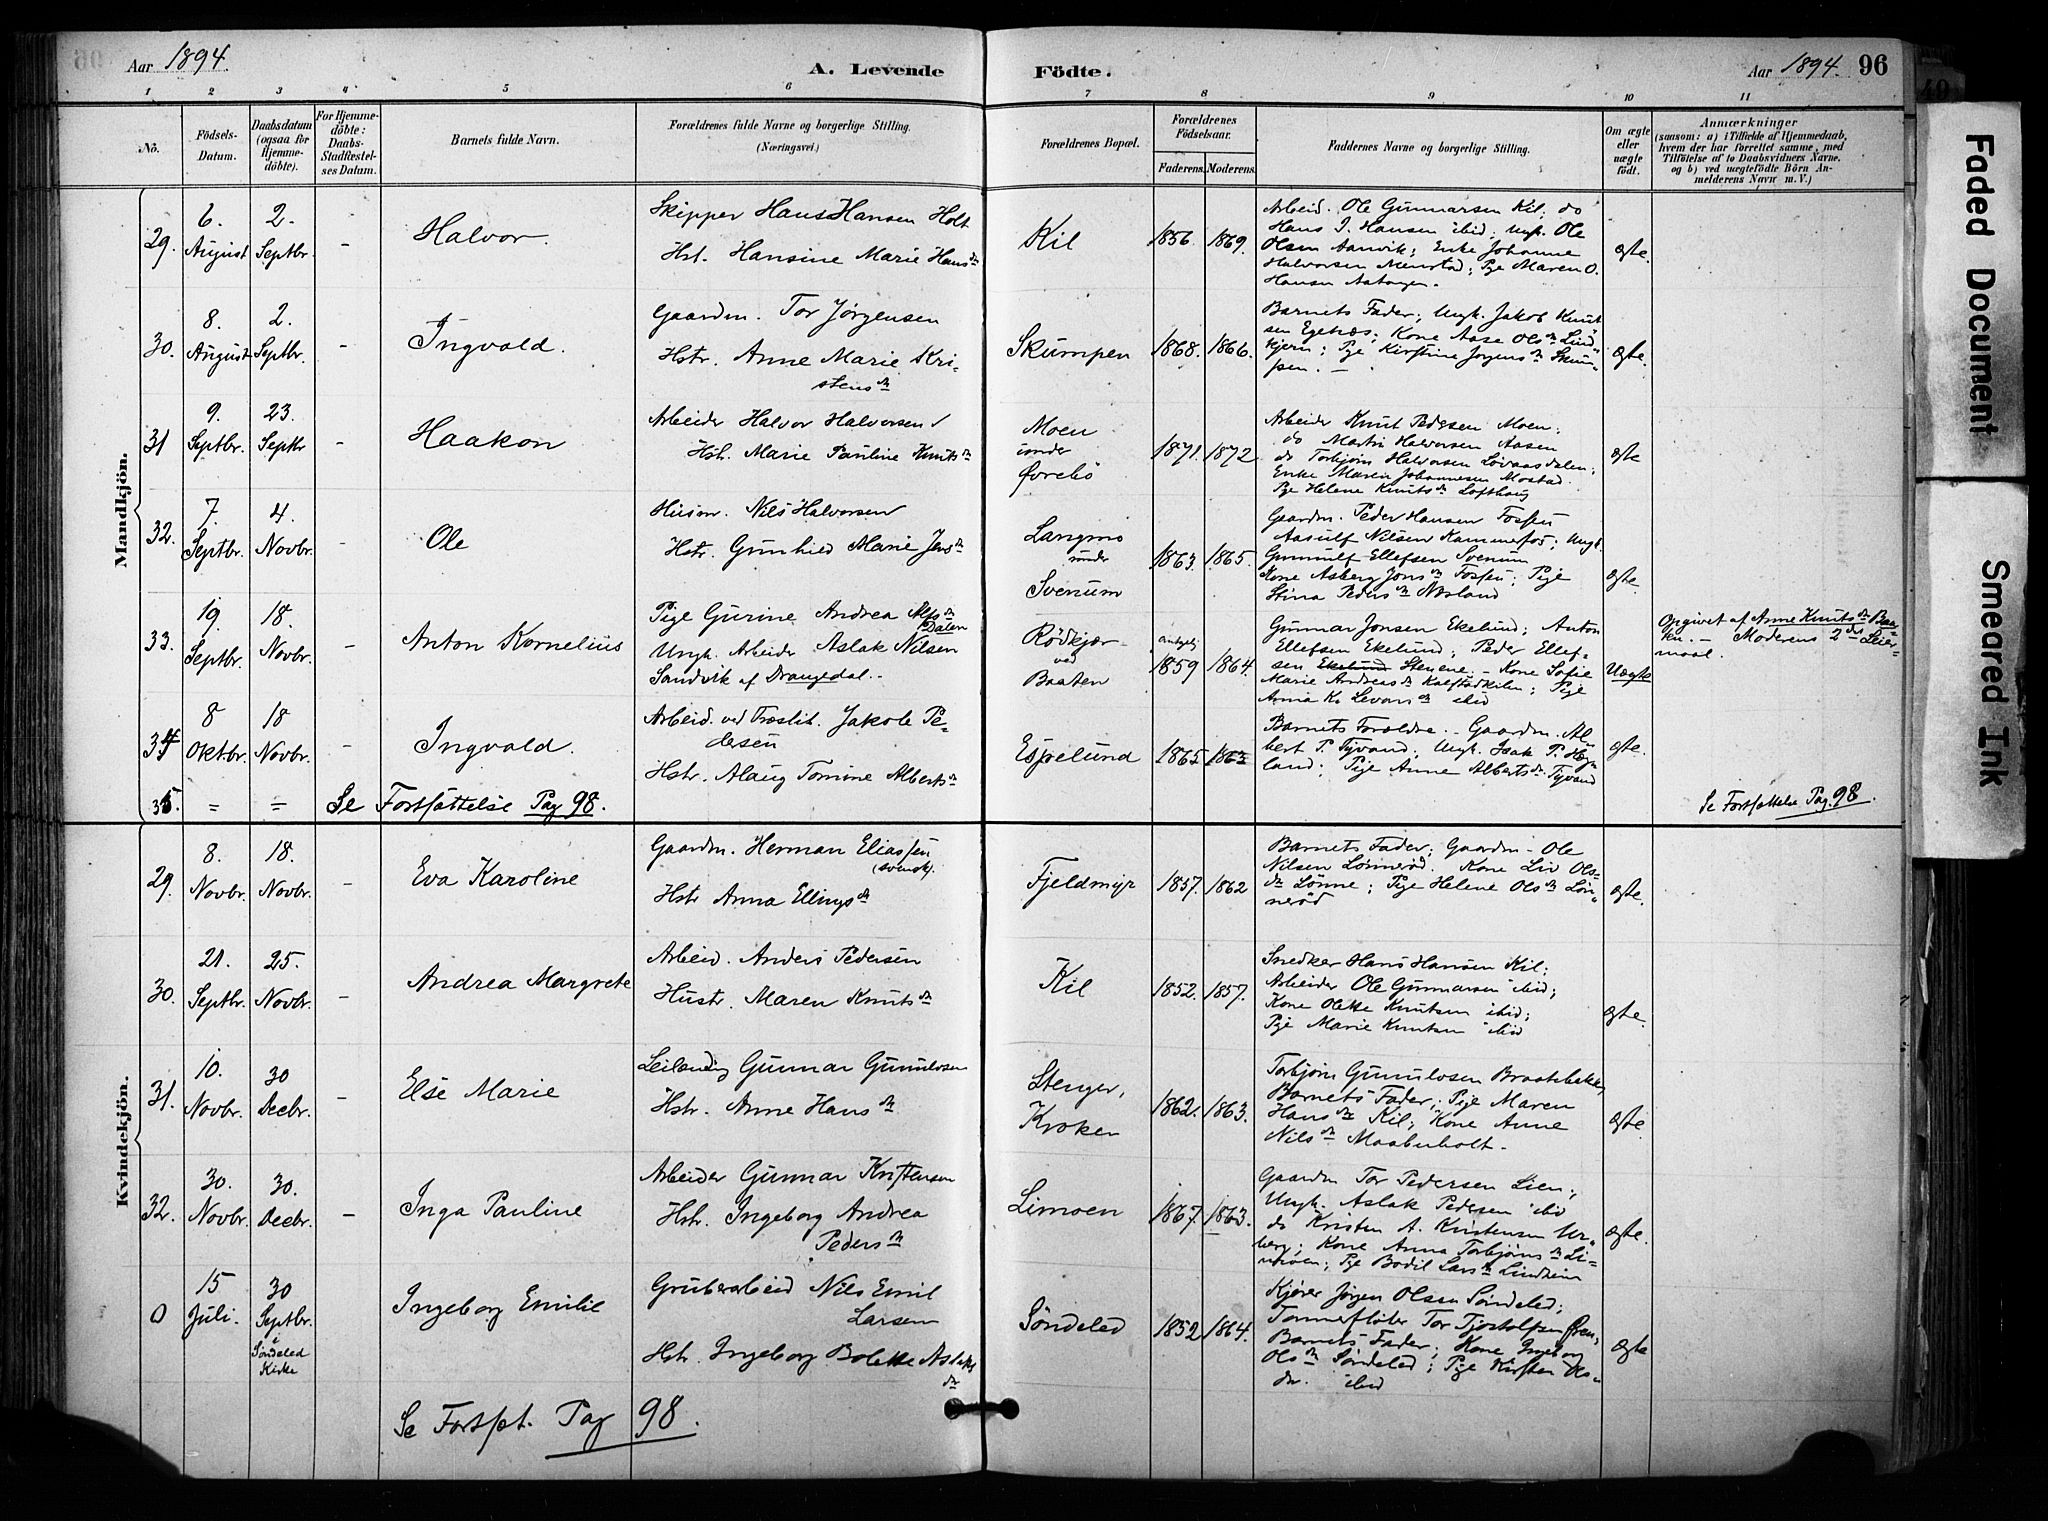 Aar 1894.
A. Levende
Födte.
Aar 1894. 96
1 2 3 4 5 6 7 8 9 10 11
Nô.
Födsels-Datum.
Daabsdatum (ogsaa for Hjemme-döbte).
For Hjemme-döbte: Daabs-Stadfæstel-ses Datum.
Barnets fulde Navn.
Forældrenes fulde Navne og borgerlige Stilling.
(Næringsvei.)
Forældrenes Bopæl.
Forældrenes Födselsaar.
Faderens. Moderens.
Faddernes Navne og borgerlige Stilling.
Om ægte eller uægte födt.
Anmærkninger
(saasom: a) i Tilfælde af Hjemmedaab, hvem der har forrettet samme, med Tilföielse af to Daabsvidners Navne, og b) ved uægtefödte Börn An-melderens Navn m. V.)
Mandkjön.
29. 6. August 2. Septbr. - Halvor.
Skipper Hans Hansen Holt
Hst. Hansine Marie Hansdr
Kil 1856. 1869.
Arbeid. Ole Gunnarsen Kil; do
Hans J. Hansen ibid; Ungk. Ole
Olsen Aanvik; Enke Johanne
Halvorsen Menstad; Pige Maren O.
Hansen
ægte.
30. 8. August 2. Septbr. - Ingvald.
Gaardm. Tor Jørgensen
Hstr. Anne Marie Kri-
stensdr
Skumpen 1868. 1866.
Barnets Fader; Ungk. Jakob Knut
sen Egenæs; Kone Aase Olsdr Lind
kjern; Pige Kirstine Jørgensdr Skum-
pen. -
ægte.
31 9. Septbr. 23. Septbr - Haakon
Arbeider Halvor Halvorsen
Hstr. Marie Pauline Knutsdr
Moen
under
Øvrebö
1871. 1872
Arbeider Knut Pedersen Moen;
do Martin Halvorsen Aasen
do Torbjørn Halvorsen Løvaasdalen;
Enke Maren Johannesen Mostad.
Pige Helene Knutsdr Lofthaug
ægte
32. 7. Septbr. 4. Novbr. - Ole
Husm. Nils Halvorsen
Hstr. Gunhild Marie Jensdr
Langmo
under
Svenum
1863. 1865.
Gaardm. Peder Hansen Fossen
Aasulf Nilsen Kammerfos; Ungk.
Gunnulf Ellefsen Svenum
Kone Asberg Jonsdr Fossen; Pige
Stina Pedersdr
ægte.
33. 19. Septbr. 18. Novbr. - Anton Kornelius
Pige Gurine Andrea Alfsdr
Dalen
Ungk. Arbeider Aslak Nilsen
Sandvik af Drangedal.
Rödkjær
ved
Baaten
antagelig
1859 1864.
Gunnar Jonsen Ekelund; Anton
Ellefsen Ekelund; Peder Ellef-
sen Ekelund Stenene. - Kone Sofie
Marie Andreasdr Kalstadkilen; Pige
Anna K. ibid
Uægte
Opgivet af Anne Knutsdr Baa-
ken. - Moderens 2det Leier-
maal.
34 8 Oktbr. 18 Novbr. - Ingvald.
Arbeid. ved Træslib. Jakob Pe-
dersen
Hstr. Alaug Tomine Albertsdr
Espelund 1865 1863
Barnets Forældre. - Gaardm. Al-
bert P. Tyvand; Ungk. Isak P. Høg-
land; Pige Anne Albertsdr Tyvand
ægte.
35. = = Se Fortsættelse Pag 98.
Se Fortsættelse Pag. 98.
Kvindekjön.
29. 8. Novbr. 18. Novbr. - Eva Karoline
Gaardm. Herman Eliassen
(svensk).
Hstr Anna Ellingsdr
Fjeldmyr 1857. 1862
Barnets Fader; Gaardm - Ole
Nilsen Lønnerød. Kone Liv Ols-
dr Lönne; Pige Helene Olsdr Løn-
nerød
ægte.
30. 21. Septbr. 25. Novbr. - Andrea Margrete
Arbeid. Anders Pedersen
Hustr. Maren Knutsdr
Kil 1852. 1857.
Snedker Hans Hansen Kil;
Arbeider Ole Gunnarsen ibid;
Kone Olette Knutsen ibid;
Pige Marie Knutsen ibid
ægte.
31. 10. Novbr. 30 Decbr. - Else Marie
Leilænding Gunnar Gunulvsen
Hstr. Anne Hansdr
Stenger,
Kroken
1862. 1863.
Torbjørn Gunulvsen Braatbakke,
Barnets Fader; Pige Maren
Hansdr Kil; Kone Anne
Nilsdr
ægte.
32. 30. Novbr. 30. Decbr. - Inga Pauline
Arbeider Gunnar Kristensen
Hstr. Ingeborg Andrea
Pedersdr
Limoen 1867. 1863.
Gaardm Tor Pedersen Lien;
Ungk. Aslak Pedersen ibid
do Kristen A. Kristensen Ur-
berg; Kone Anna Torbjørnsdr Li-
moen; Pige Bodil Larsdr Lindheim
ægte.
0 15 Juli. 30 Septbr. i Söndeled Kirke Ingeborg Emilie
Grubearbeid Nils Emil
Larsen
Hstr. Ingeborg Bolette Aslaks
dr
Söndeled 1852 1864.
Kjører Jørgen Olsen Söndeled;
Tømmerfløter Tor Tjostolfsen
Barnets Fader; Kone Ingeborg
Olsdr Söndeled; Pige Kirsten Ols-
dr. ibid
ægte
Se Fortsæt. Pag 98.
Faded Document
Smeared Ink